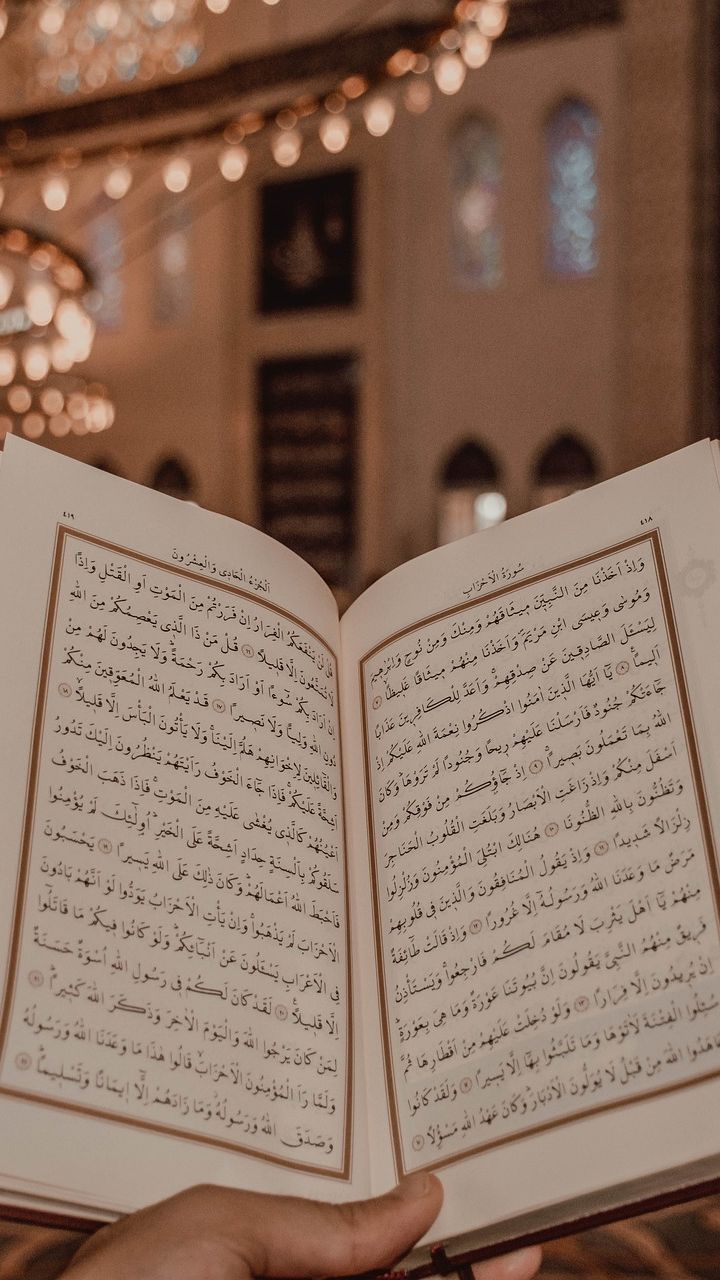 ٤١٨
سُورَةُ الْاَحْزَابِ
وَاِذْ اَخَذْنَا مِنَ النَّبِيّٖنَ مٖيثَاقَهُمْ وَمِنْكَ وَمِنْ نُوحٍ وَاِبْرٰهٖيمَ
وَمُوسٰى وَعٖيسَى ابْنِ مَرْيَمَ وَاَخَذْنَا مِنْهُمْ مٖيثَاقًا غَلٖيظًاۙ ﴿٧﴾
لِيَسْـَٔلَ الصَّادِقٖينَ عَنْ صِدْقِهِمْۚ وَاَعَدَّ لِلْكَافِرٖينَ عَذَابًا
اَلٖيمًاࣖ ﴿٨﴾ يَٓا اَيُّهَا الَّذٖينَ اٰمَنُوا اذْكُرُوا نِعْمَةَ اللّٰهِ عَلَيْكُمْ اِذْ
جَٓاءَتْكُمْ جُنُودٌ فَاَرْسَلْنَا عَلَيْهِمْ رٖيحًا وَجُنُودًا لَمْ تَرَوْهَاۜ وَكَانَ
اللّٰهُ بِمَا تَعْمَلُونَ بَصٖيرًاۚ ﴿٩﴾ اِذْ جَٓاؤُ۫كُمْ مِنْ فَوْقِكُمْ وَمِنْ
اَسْفَلَ مِنْكُمْ وَاِذْ زَاغَتِ الْاَبْصَارُ وَبَلَغَتِ الْقُلُوبُ الْحَنَاجِرَ
وَتَظُنُّونَ بِاللّٰهِ الظُّنُونَا ﴿١٠﴾ هُنَالِكَ ابْتُلِيَ الْمُؤْمِنُونَ وَزُلْزِلُوا
زِلْزَالًا شَدٖيدًا ﴿١١﴾ وَاِذْ يَقُولُ الْمُنَافِقُونَ وَالَّذٖينَ فٖي قُلُوبِهِمْ
مَرَضٌ مَا وَعَدَنَا اللّٰهُ وَرَسُولُهُٓ اِلَّا غُرُورًا ﴿١٢﴾ وَاِذْ قَالَتْ طَٓائِفَةٌ
مِنْهُمْ يَٓا اَهْلَ يَثْرِبَ لَا مُقَامَ لَكُمْ فَارْجِعُواۚ وَيَسْتَأْذِنُ
فَرٖيقٌ مِنْهُمُ النَّبِيَّ يَقُولُونَ اِنَّ بُيُوتَنَا عَوْرَةٌ وَمَا هِيَ بِعَوْرَةٍۚ
اِنْ يُرٖيدُونَ اِلَّا فِرَارًا ﴿١٣﴾ وَلَوْ دُخِلَتْ عَلَيْهِمْ مِنْ اَقْطَارِهَا ثُمَّ
سُئِلُوا الْفِتْنَةَ لَاٰتَوْهَا وَمَا تَلَبَّثُوا بِهَٓا اِلَّا يَسٖيرًا ﴿١٤﴾ وَلَقَدْ كَانُوا
عَاهَدُوا اللّٰهَ مِنْ قَبْلُ لَا يُوَلُّونَ الْاَدْبَارَۜ وَكَانَ عَهْدُ اللّٰهِ مَسْؤُ۫لًا ﴿١٥﴾
٤١٩
اَلْجُزْءُ الْحَادِي وَالْعِشْرُونَ
قُلْ لَنْ يَنْفَعَكُمُ الْفِرَارُ اِنْ فَرَرْتُمْ مِنَ الْمَوْتِ اَوِ الْقَتْلِ وَاِذًا
لَا تُمَتَّعُونَ اِلَّا قَلٖيلًا ﴿١٦﴾ قُلْ مَنْ ذَا الَّذٖي يَعْصِمُكُمْ مِنَ اللّٰهِ
اِنْ اَرَادَ بِكُمْ سُٓوءًا اَوْ اَرَادَ بِكُمْ رَحْمَةًۜ وَلَا يَجِدُونَ لَهُمْ مِنْ
دُونِ اللّٰهِ وَلِيًّا وَلَا نَصٖيرًا ﴿١٧﴾ قَدْ يَعْلَمُ اللّٰهُ الْمُعَوِّقٖينَ مِنْكُمْ
وَالْقَٓائِلٖينَ لِاِخْوَانِهِمْ هَلُمَّ اِلَيْنَاۚ وَلَا يَأْتُونَ الْبَأْسَ اِلَّا قَلٖيلًاۙ ﴿١٨﴾
اَشِحَّةً عَلَيْكُمْۚ فَاِذَا جَٓاءَ الْخَوْفُ رَاَيْتَهُمْ يَنْظُرُونَ اِلَيْكَ تَدُورُ
اَعْيُنُهُمْ كَالَّذٖي يُغْشٰى عَلَيْهِ مِنَ الْمَوْتِۚ فَاِذَا ذَهَبَ الْخَوْفُ
سَلَقُوكُمْ بِاَلْسِنَةٍ حِدَادٍ اَشِحَّةً عَلَى الْخَيْرِۜ اُو۬لٰٓئِكَ لَمْ يُؤْمِنُوا
فَاَحْبَطَ اللّٰهُ اَعْمَالَهُمْۜ وَكَانَ ذٰلِكَ عَلَى اللّٰهِ يَسٖيرًا ﴿١٩﴾ يَحْسَبُونَ
الْاَحْزَابَ لَمْ يَذْهَبُواۚ وَاِنْ يَأْتِ الْاَحْزَابُ يَوَدُّوا لَوْ اَنَّهُمْ بَادُونَ
فِي الْاَعْرَابِ يَسْـَٔلُونَ عَنْ اَنْبَٓائِكُمْۜ وَلَوْ كَانُوا فٖيكُمْ مَا قَاتَلُٓوا
اِلَّا قَلٖيلًاࣖ ﴿٢٠﴾ لَقَدْ كَانَ لَكُمْ فٖي رَسُولِ اللّٰهِ اُسْوَةٌ حَسَنَةٌ
لِمَنْ كَانَ يَرْجُوا اللّٰهَ وَالْيَوْمَ الْاٰخِرَ وَذَكَرَ اللّٰهَ كَثٖيرًاۜ ﴿٢١﴾
وَلَمَّا رَاَ الْمُؤْمِنُونَ الْاَحْزَابَۙ قَالُوا هٰذَا مَا وَعَدَنَا اللّٰهُ وَرَسُولُهُ
وَصَدَقَ اللّٰهُ وَرَسُولُهُۘ وَمَا زَادَهُمْ اِلَّٓا اٖيمَانًا وَتَسْلٖيمًاۜ ﴿٢٢﴾